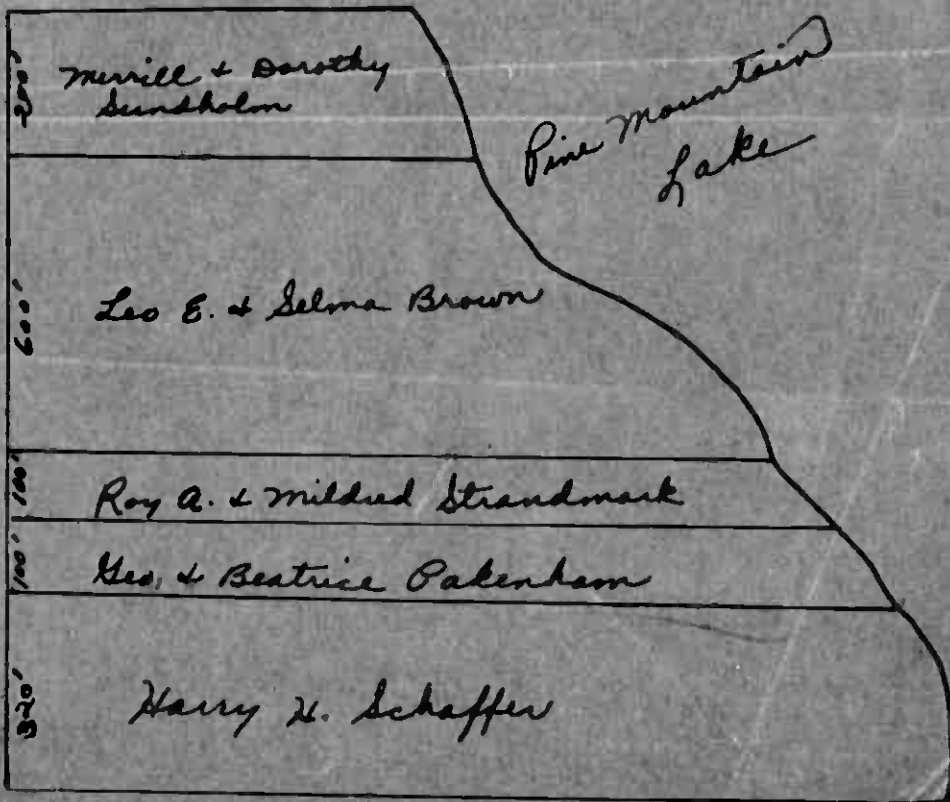 200'
Merrill & Dorothy
Sundholm
Pine Mountain
Lake
600'
Leo E. & Selma Brown
100'
Roy A. & Mildred Strandmark
100'
Geo. & Beatrice Pakenham
320'
Harry H. Schaffer